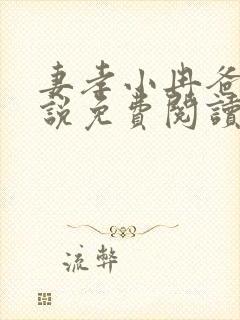 妻孝小冉爸
說免費閱讀
流弊